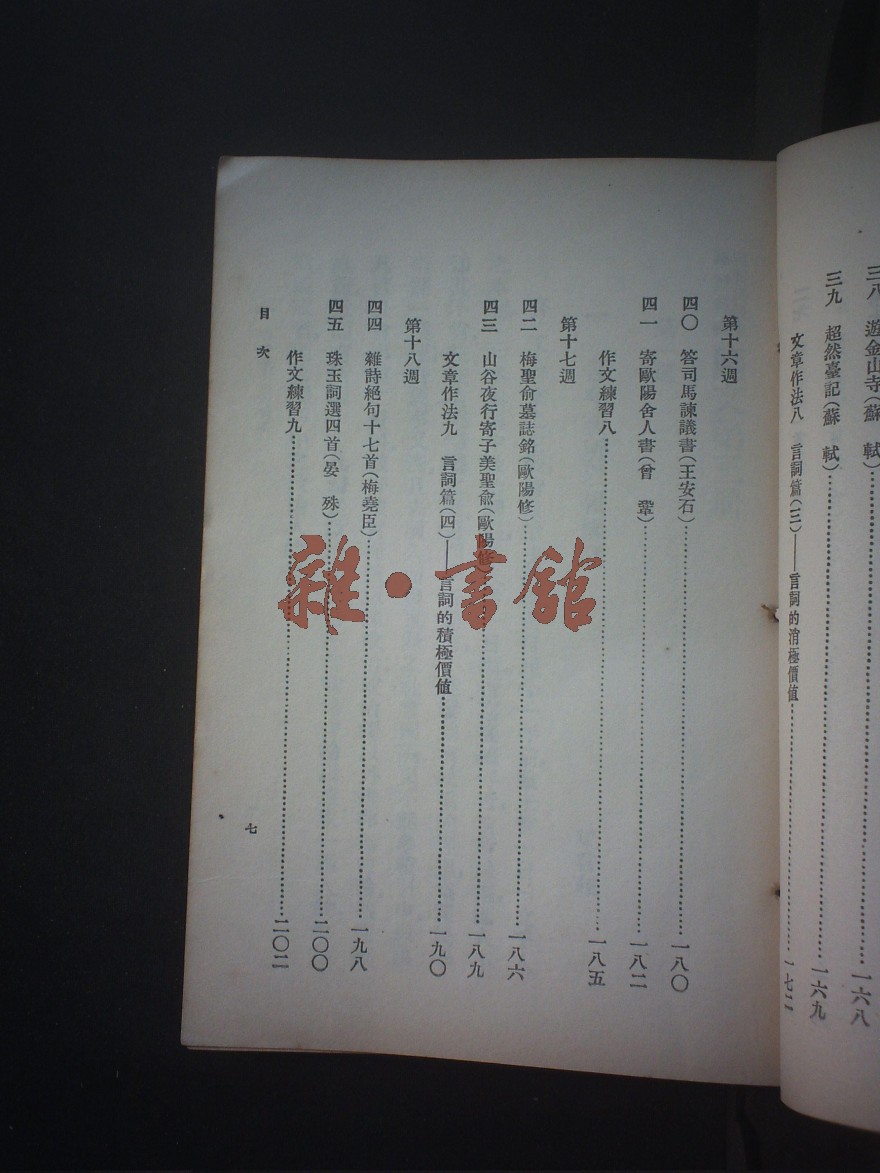 三八　遊金山寺（蘇　軾）……一六八
三九　超然臺記（蘇　軾）……一六九
文章作法八　言詞篇（三）——言詞的消極價值……一七二
第十六週
四〇　答司馬諫議書（王安石）……一八〇
四一　寄歐陽舍人書（曾　鞏）……一八二
作文練習八……一八五
第十七週
四二　梅聖俞墓誌銘（歐陽修）……一八六
四三　山谷夜行寄子美聖兪（歐陽修）……一八九
文章作法九　言詞篇（四）——言詞的積極價値……一九〇
第十八週
四四　雜詩絕句十七首（梅堯臣）……一九八
四五　珠玉詞選四首（晏　殊）……二〇〇
作文練習九……二〇二
目次
七
雜·書館